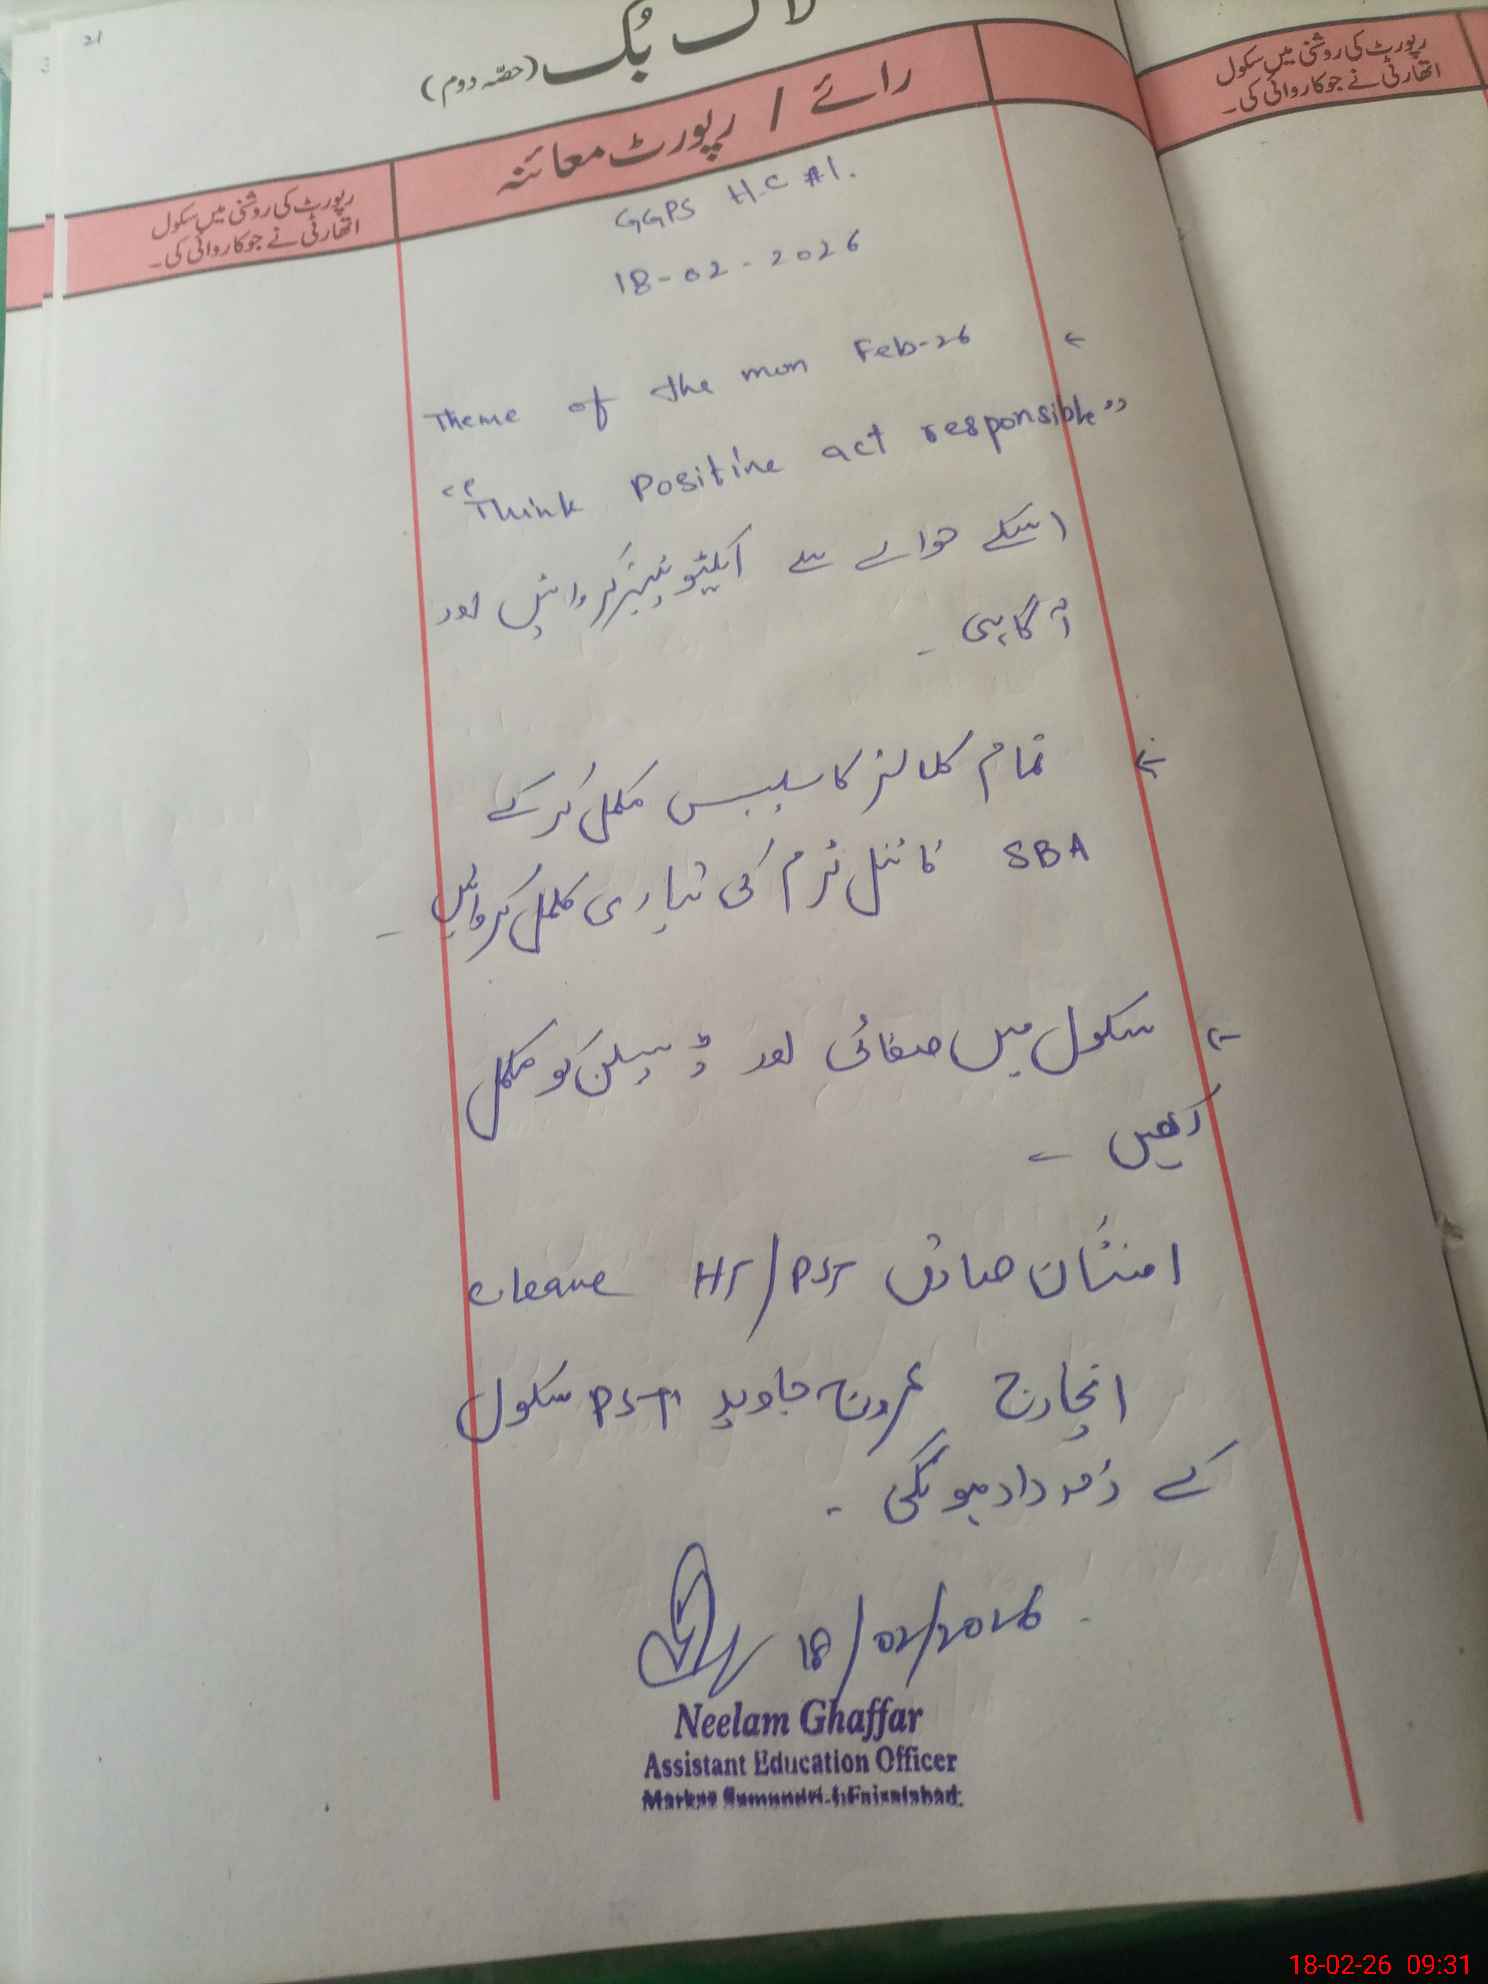 21
لاگ بُک (حصّہ دوم)
رائے / رپورٹ معائنہ
رپورٹ کی روشنی میں سکول
اتھارٹی نے جو کاروائی کی۔
رپورٹ کی روشنی میں سکول
اتھارٹی نے جو کاروائی کی۔
GGPS H.C #1.
18-02-2026
Theme of the mon Feb-26
"Think Positive act responsible"
اسکے حوالے سے ایکٹیوٹیز کروائیں اور
آگاہی ۔
تمام کلاسز کا سلیبس مکمل کر کے
SBA فائنل ٹرم کی تیاری مکمل کروائیں ۔
سکول میں صفائی اور ڈسپلن کو مکمل
رکھیں ۔
صادق HT/PST cleave
انچارج عروج جاوید PST سکول
کے ذمہ دار ہونگی ۔
18/02/2026
Neelam Ghaffar
Assistant Education Officer
Markaz Samundri-1, Faisalabad.
18-02-26 09:31